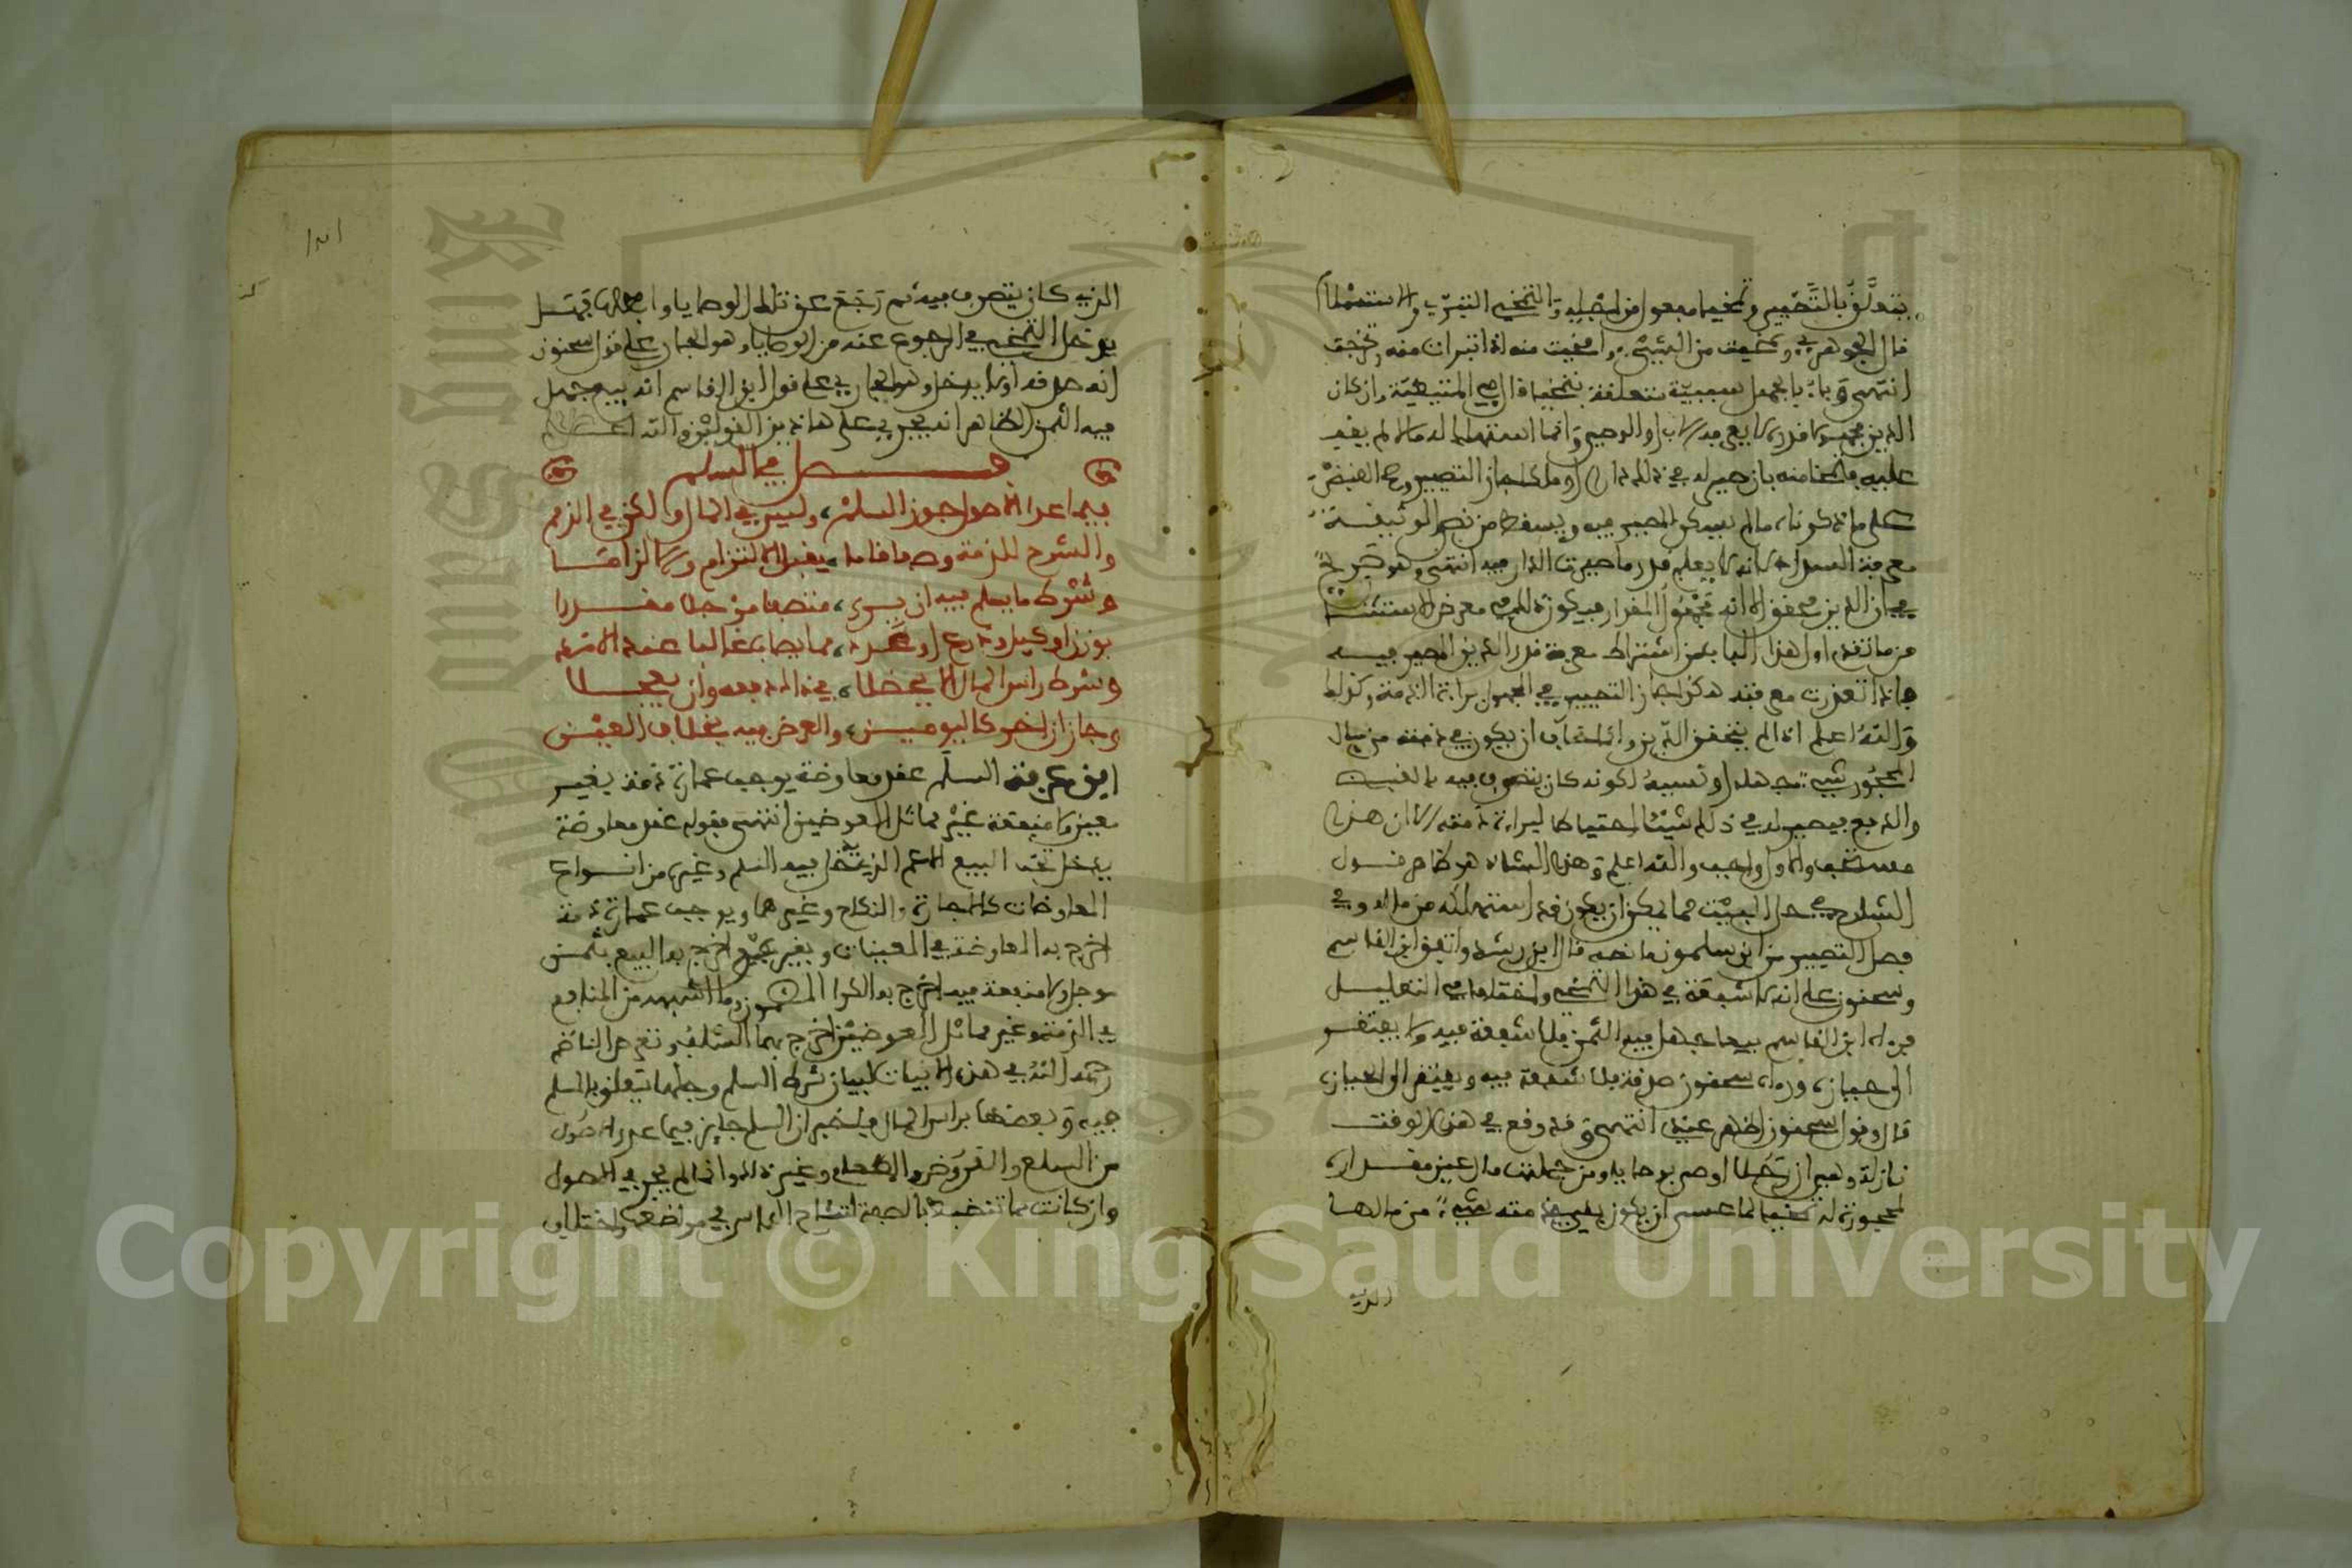 يتعلق بالتصيير وتمخيا مفعول من اجله والتمخي التبري والاستـ
قال الجوهري وتمخيت من الشيء وامخيت منه اذا تبرات منه وتحرجت
انتهى وباء بالجهل سببية تتعلق بتمخيا قال في المتيطية وان كان
الدين مجهولا قدره لا يعرفه الاب او الوصي وانما استهلك له مالا لم يقيد
عليه فتمخا منه بان صير له في ذلك دارا او ملكا جاز التصيير وصح القبض
على ما ذكرنا، مالم يعد كون المصير فيه ويسقط من نص الوثيقة
معرفة السداد لانه لا يعلم قدر ما صيرت الدار فيه انتهى وهو صريح
في ان الدين محقق الا انه مجهول المقدار فيكون ذلك في معرض الاستثنا
من ما تقدم اول هذا الباب من اشتراط معرفة قدر الدين المصير فيه
فاذا تعذرت معرفته هكذا جاز التصيير في المجهول براءة الذمة وكذلك
والله اعلم اذا لم يتحقق الدين وانما خاف ان يكون في ذمته من مال
المحجور شيء جهله او نسيه لكونه كان يتصرف فيه بالغيبـ
والدفع فيصير له في ذلك شيئا احتياطا لبراءة ذمته الا ان هذا
مستحب والاول واجب والله اعلم وهذا الشان هو ظاهر قول
الشارح في حل البيت مما يمكن ان يكون قد استهلكه من ماله وفي
فصل التصيير من ابن سلمون ما نصه قال ابن رشد واتفق ابن القاسم
وسحنون على انه لا شفعة في هذا التمخي واختلفا في التعليل
فرءاه ابن القاسم بيعا جهل فيه الثمن فلا شفعة فيه ولا يفتقر
الى حيازة ورءاه سحنون صدقة فلا شفعة فيه ويفتقر الى الحيازة
قال وقول سحنون اظهر عندي انتهى وقد وقع في هذا الوقت
نازلة وهي ان رجلا اوصى بوصايا ومن جملتها مال عين مقداره
لمحجورة له تمخيا لما عسى ان يكون بقي في ذمته شيء من مالها
الذي
الذي كان يتصرف فيه ثم رجع عن تلك الوصايا وابطلها فهل
يدخل التمخي في الرجوع عنه من الوصايا وهو الجاري على قول سحنون
انه صدقة اولا يدخل وهو الجاري على قول ابن القاسم انه بيع جهل
فيه الثمن الظاهر انه يجري على هاذين القولين والله اعلم
فصل في السلم
فيما عدا الاصول جوز السلم، وليس في المال ولكن في الذمم
والشرح للذمة وصف قاما، يقبل الالتزام والالزاما
وشرط ما يسلم فيه ان يرى، متصفا مؤجلا مقدرا
بوزن او كيل وذرع او عدد، مما يصاب غالبا عند الامد
وشرط راس المال الا يحظلا، في ذاك دفعه وان يعجلا
وجاز ان اخر كاليومين، والعرض فيه بخلاف العين
ابن عرفة السلم عقد معاوضة يوجب عمارة ذمة بغير
عين ولا منفعة غير متماثل العوضين انتهى فقوله عقد معاوضة
يدخل تحته البيع الاعم الذي يدخل فيه السلم وغيره من انواع
المعاوضات كالاجارة والنكاح وغيرهما ويوجب عمارة ذمة
اخرج به المعاوضة في المعينات وبغير عين اخرج به البيع بثمن
مؤجل ولا منفعة فيه اخرج به الكراء المضمون وما اشبهه من المنافع
في الذمة وغير متماثل العوضين اخرج بهما السلف وتعرض الناظم
رحمه الله في هذه الابيات لبيان شرط السلم وجلها تتعلق بالمسلم
فيه وبعضها براس المال فاخبر ان السلم جايز فيما عدا الاصول
من السلع والعروض والطعام وغير ذلك وانما لم يجز في الاصول
وان كانت مما تنضبط بالصفة لتشاح الناس في مواضعها واختلاف